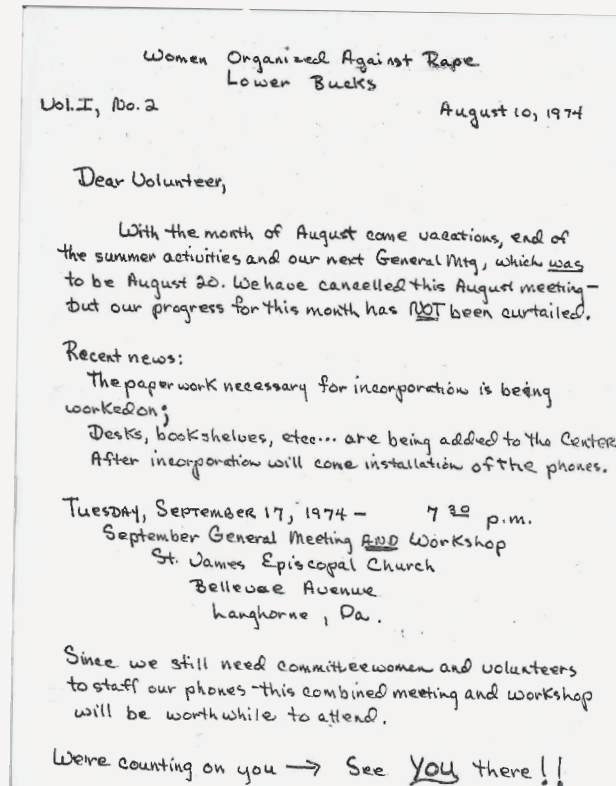 Women Organized Against Rape
Lower Bucks
Vol. I, No. 2
August 10, 1974
Dear Volunteer,
With the month of August come vacations, end of
the summer activities and our next General Mtg, which was
to be August 20. We have cancelled this August meeting-
but our progress for this month has NOT been curtailed.
Recent news:
The paperwork necessary for incorporation is being
worked on;
Desks, bookshelves, etc... are being added to the Center
After incorporation will come installation of the phones.
TUESDAY, SEPTEMBER 17, 1974 - 7 30 p.m.
September General Meeting AND Workshop
St. James Episcopal Church
Bellevue Avenue
Langhorne, Pa.
Since we still need committeewomen and volunteers
to staff our phones - this combined meeting and workshop
will be worthwhile to attend.
We're counting on you → See YOU there!!